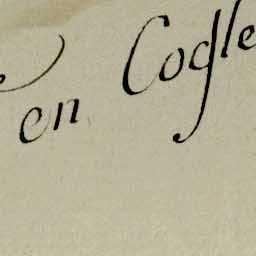 en Cogle